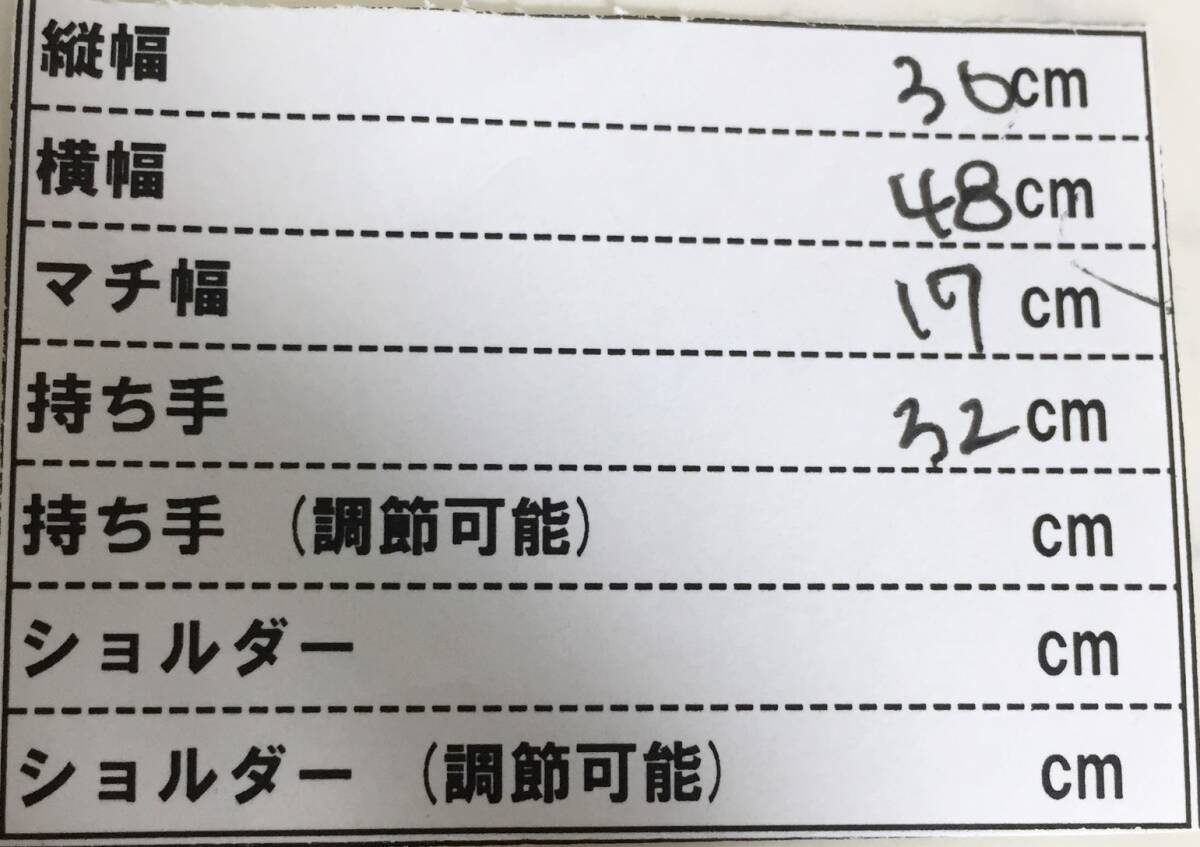 縦幅 30cm
横幅 48cm
マチ幅 17cm
持ち手 32cm
持ち手 (調節可能) cm
ショルダー cm
ショルダー (調節可能) cm